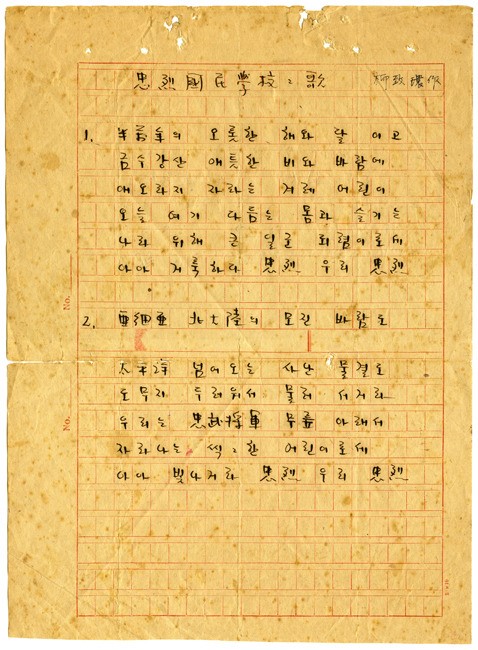 忠烈國民學校々歌 柳致環作
1. 半萬年의 오롯한 해와 달 이고
금수강산 애틋한 비와 바람에
애오라지 자라는 겨레 어린이
오늘 여기 다듬는 몸과 슬기는
나라 위해 큰 일군 되렴이로세
아아 거룩하다 忠烈 우리 忠烈
2. 亜細亜 北大陸의 모진 바람도
太平洋 넘어오는 사난 물결도
도무지 두려워서 물러 서거라
우리는 忠武将軍 무릎 아래서
자라나는 씩々한 어린이로세
아아 빛나거라 忠烈 우리 忠烈
No.
No.